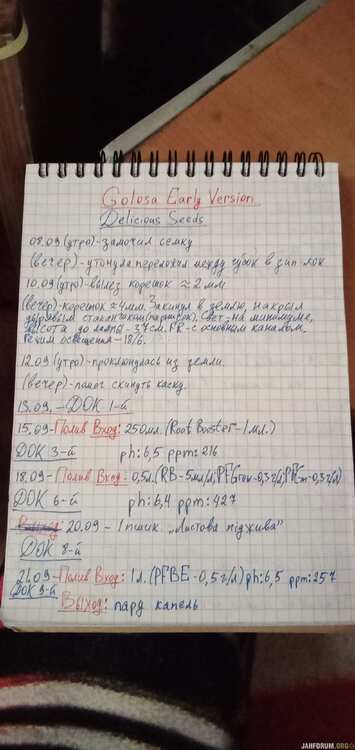 Golosa Early Version
Delicious Seeds
08.09 (утро)-замочил семку
(вечер)-утонула переложил между губок в зип лок
10.09 (утро)-вылез корешок ≈ 2 мм
(вечер)-корешок ≈ 4мм. Закинул в землю, накрыл
стаканчиком(парничок). Свет-на минимуме,
высота до лампы-37см. FR-с основным каналом.
Режим освещения-18/6.
12.09 (утро)-проклюнулась из земли.
(вечер)-помог скинуть каску.
13.09.-ДОК 1-й
15.09-Полив Вход: 250мл. (Root Booster-1мл.)
ДОК 3-й ph:6,5 ppm:216
18.09-Полив Вход: 0,5л.(RB-5мл/л; -0,3г/л; -0,3г/л)
ДОК 6-й ph:6,4 ppm:427
20.09-1 пшик „Листова підживa"
ДОК 8-й
21.09-Полив Вход: 1л.(PFBE-0,5г/л) ph:6,5 ppm:257
ДОК 9-й Выход: пара капель
JAHFORUM.ORG